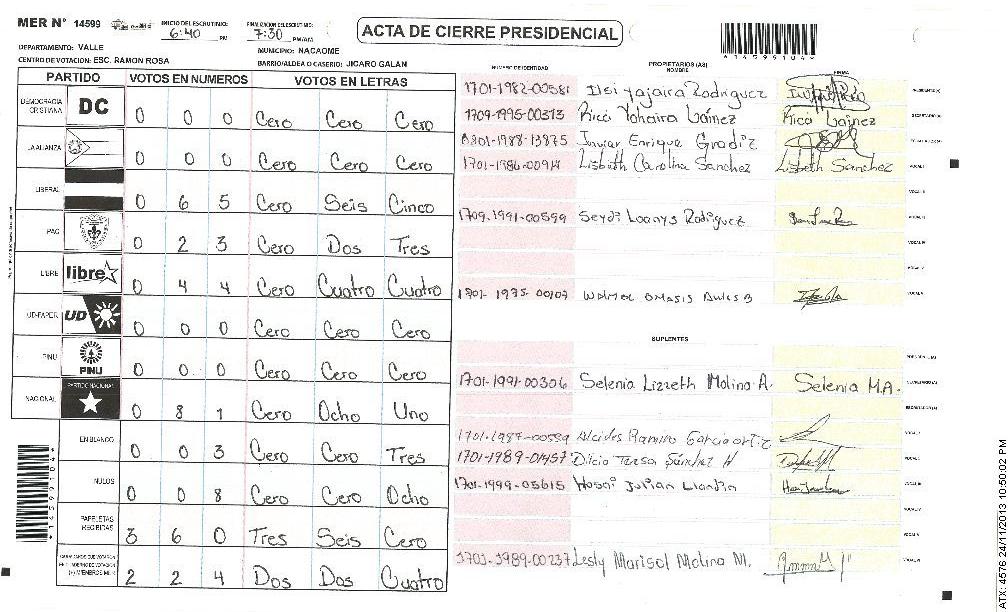 MER N° 14599
INICIO DEL ESCRUTINIO: 6:40 PM
FINALIZACION DEL ESCRUTINIO: 7:30 PM/AM
ACTA DE CIERRE PRESIDENCIAL
*14599104*
DEPARTAMENTO: VALLE
MUNICIPIO: NACAOME
CENTRO DE VOTACION: ESC. RAMON ROSA
BARRIO/ALDEA O CASERIO: JICARO GALAN
PARTIDO VOTOS EN NUMEROS VOTOS EN LETRAS
DEMOCRACIA CRISTIANA DC 0 0 0 Cero Cero Cero
LA ALIANZA 0 0 0 Cero Cero Cero
LIBERAL 0 6 5 Cero Seis Cinco
PAC 0 2 3 Cero Dos Tres
LIBRE libre 0 4 4 Cero Cuatro Cuatro
UD-FAPER UD 0 0 0 Cero Cero Cero
PINU PINU 0 0 0 Cero Cero Cero
NACIONAL PARTIDO NACIONAL 0 8 1 Cero Ocho Uno
EN BLANCO 0 0 3 Cero Cero Tres
NULOS 0 0 8 Cero Cero Ocho
PAPELETAS RECIBIDAS 3 6 0 Tres Seis Cero
2 2 4 Dos Dos Cuatro
*14599104*
NUMERO DE IDENTIDAD PROPIETARIOS (AS) NOMBRE FIRMA
1701-1982-00581 Ilsi Yajaira Rodriguez
1709-1995-00313 Ricci Yohaira Laínez Ricci Laínez
0801-1988-13875 Enrique Gradiz
1701-1986-00914 Lisbeth Carolina Sanchez Lisbeth Sanchez
1709-1991-00599 Seydi Loanys Rodriguez
1701-1975-00107
SUPLENTES
1701-1991-00306 Selenia Lizzeth Molina A. Selenia M.A.
1701-1987-00559 Alcides Ramiro Garcia ortiz
1701-1989-01457 Dilcia Teresa Sánchez H
1701-1999-05615 Hosai Julian
1701-1989-00237 Lesly Marisol Molina M.
ATX: 4576 24/11/2013 10:50:02 PM